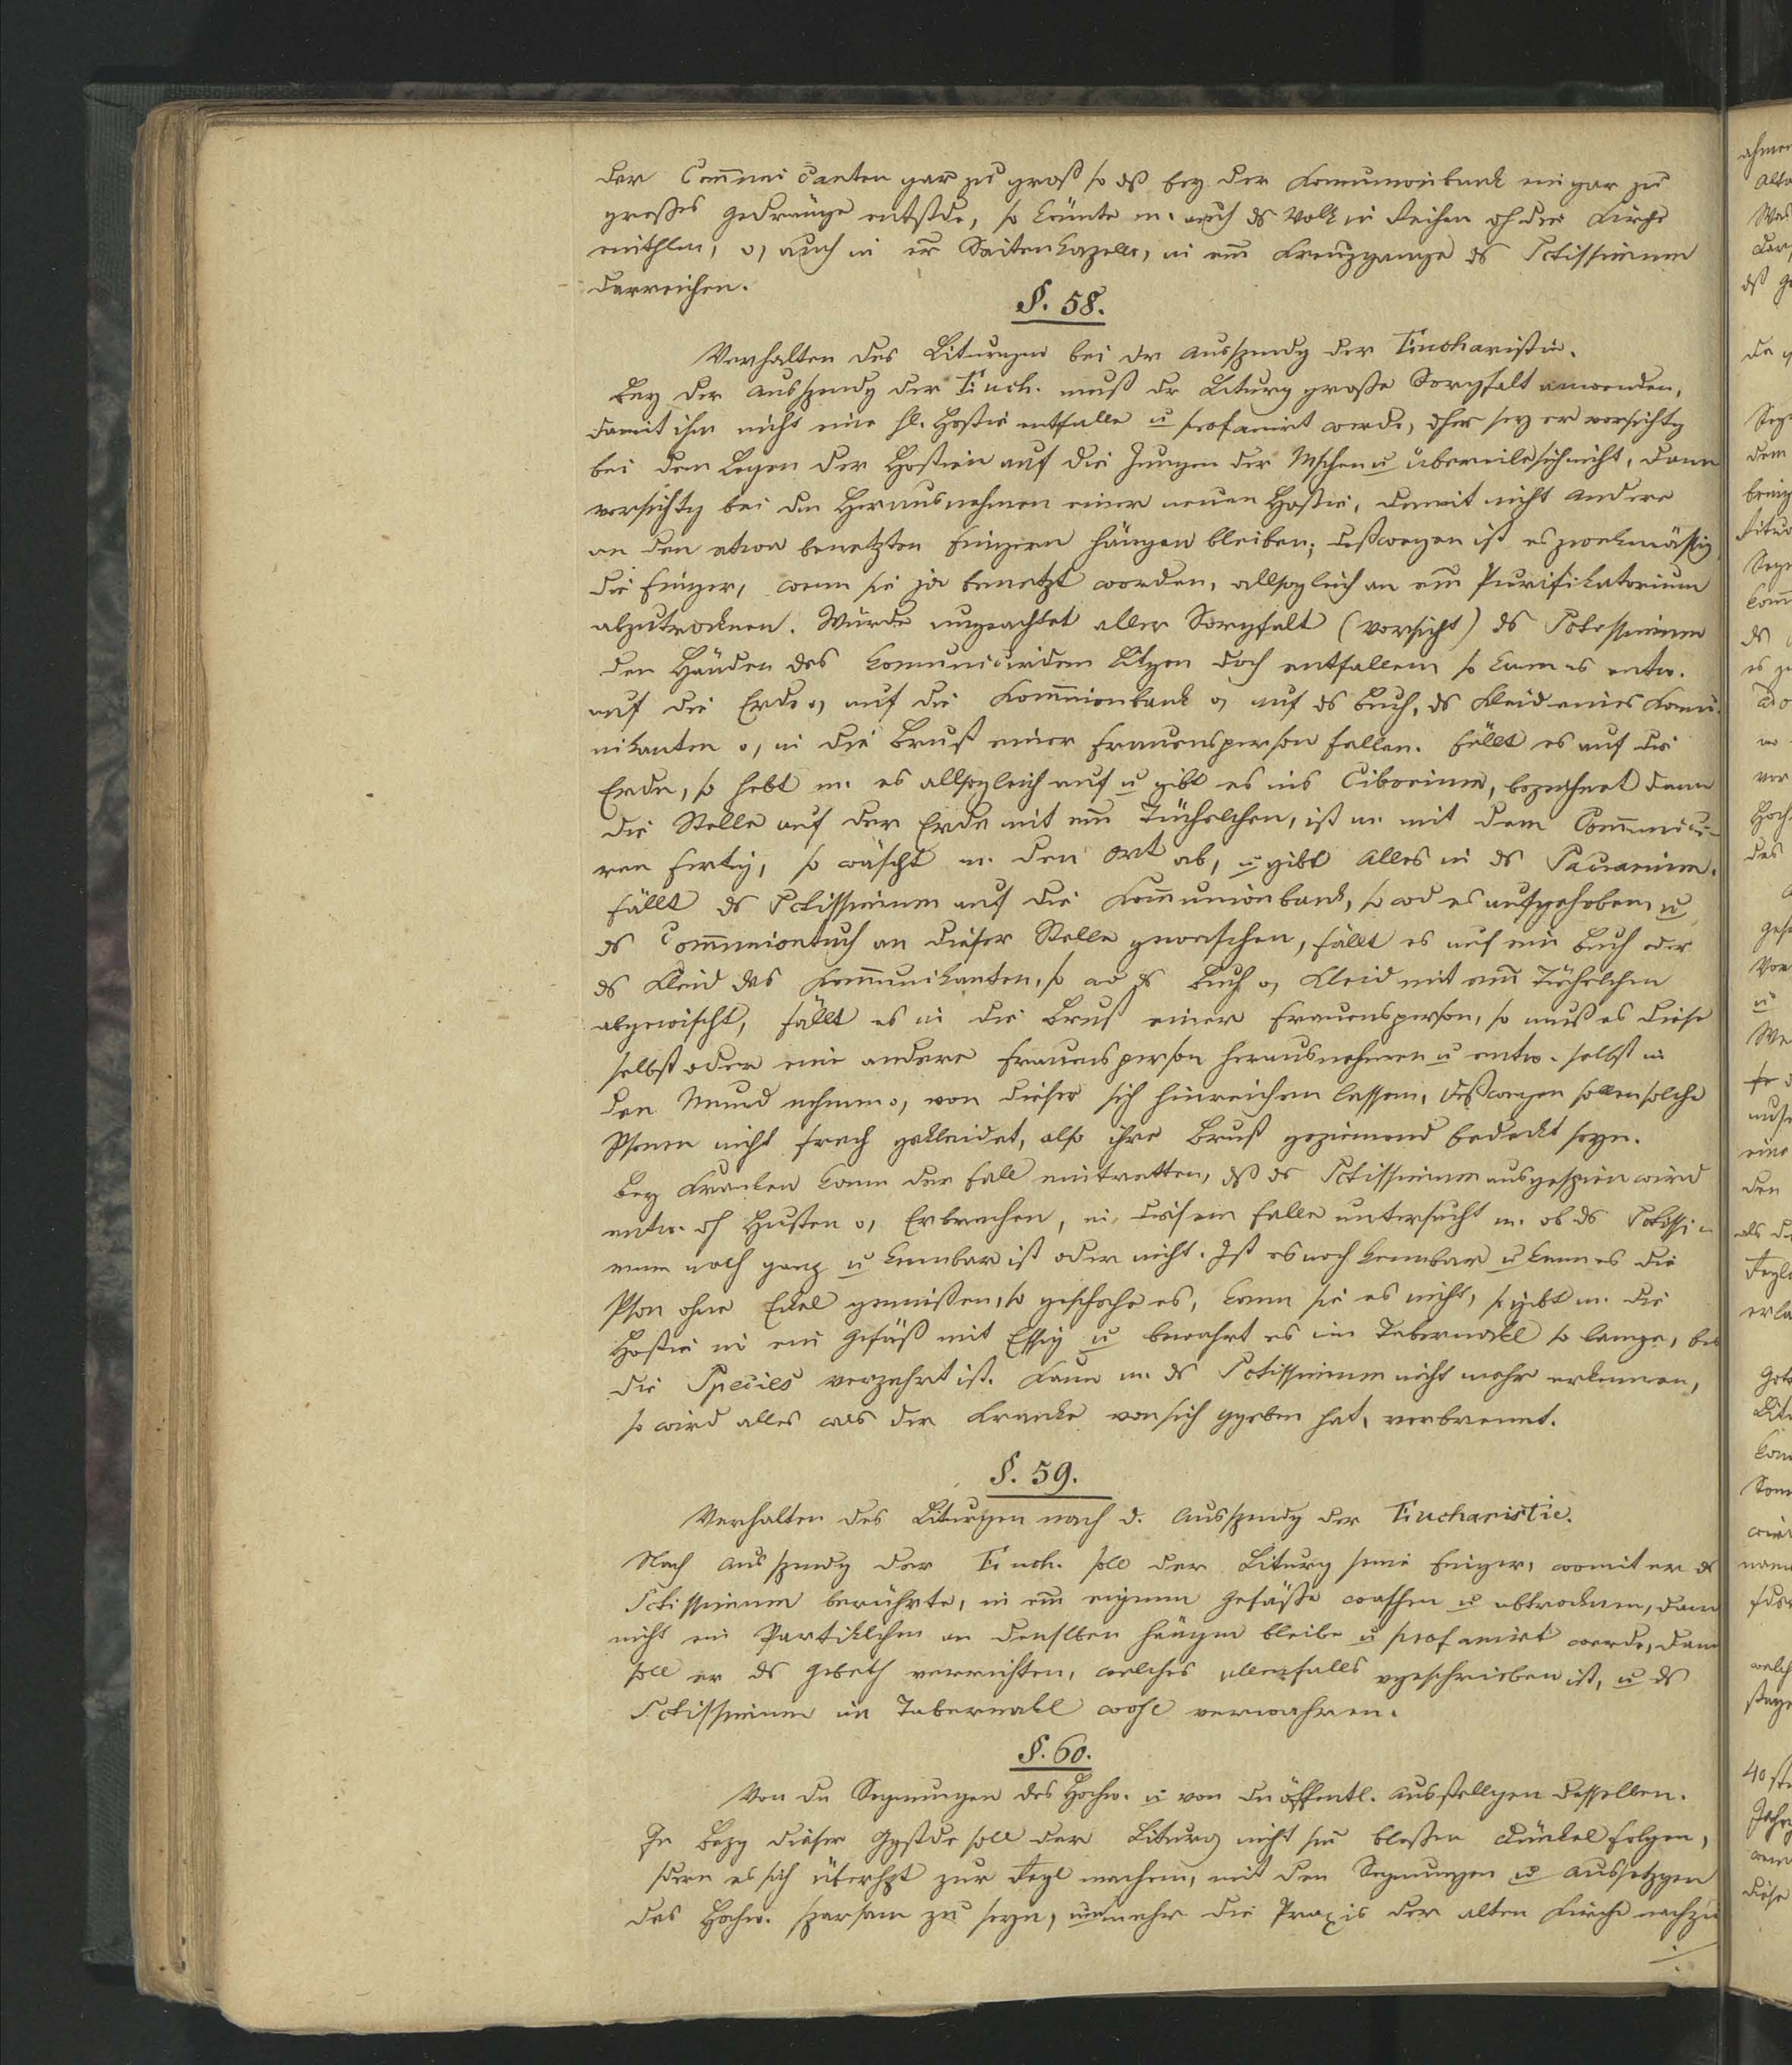 der Com̅nuni canten gar zu groß so dß bey der Komunionbank ein gar zu
großes Gedränge entstde, so könnte m. auch ds Volk in Reihen dh die Kirche
eintheilen, o, auch in er̅ Seitenkapelle, in em̅ Kreuzgange ds Sctissimum
darreichen.
§. 58.
Verhalten des Liturgen bei dr Ausspendg der Eucharistie.
Bey der Ausspendg der Euch. muß dr Liturg große Sorgfalt anwenden,
damit ihm nicht eine hl. Hostie entfalle u profanirt werde, dher sey er vorsichtg
bei dem Legen der Hostien auf die Zungen der Mschen u übereile sich nicht, dann
vorsichtg bei dem Herausnehmen einer neuen Hostie, damit nicht andere
an den etwa benetzten Fingern hängen bleiben; deßwegen ist es zwekmässig
die Finger, wenn sie ja benetzt worden, allsogleich an em̅ Purifikatorium
abzutrocknen. Würde ungeachtet aller Sorgfalt (Vorsicht) ds Sctissimum
den Händen des komunicirdem Litgen doch entfallen, so kann es entw.
auf die Erde o, auf die Kom̅nionbank o, auf ds Buch, ds Kleid eines Komu-
nikanten o, in die Brust einer Frauensperson fallen. Fällt es auf die
Erde, so hebt m. es allsogleich auf u gibt es ins Ciborium, bezeichnet dann
die Stelle auf der Erde mit em̅ Tüchelchen, ist m. mit dem Com̅unici-
ren fertig, so wäscht m. den Ort ab, u gibt alles in ds Sacrarium.
Fällt ds Sctissimum auf die Kom̅unionbank, so wd es aufgehoben u
ds Com̅uniontuch an dieser Stelle gewaschen, fällt es auf ein Buch oder
ds Kleid des Kom̅unikanten, so wd ds Buch o, Kleid mit em̅ Tüchelchen
abgewischt, fällt es in die Brust einer Frauensperson, so muß es diese
selbst oder eine andere Frauensperson herausnehmen u entw. selbst in
den Mund nehmen o, von dieser sich hinreichen lassen, deßwegen sollen solche
Psonen nicht frech gekleidet, also ihre Brust geziemend bedeckt seyn.
Bey Kranken kann der Fall eintretten, dß ds Sctissimum ausgespien wird
entw. dh Husten o, Erbrechen, in diesem Falle untersucht m. ob ds Sctissi-
mum noch ganz u kennbar ist oder nicht. Ist es noch kennbar u kann es die
Pson ohne Eckel genießen, so geschehe es, kann sie es nicht, so gibt m. die
Hostie in ein Gefäß mit Essig u bewahrt es im Tabernackl so lange, bis
die Species verzehrt ist. Kann m. ds Sctissimum nicht mehr erkennen,
so wird alles was der Kranke von sich ggeben hat, verbrennt.
§. 59.
Verhalten des Liturgen nach d. Ausspendg der Eucharistie.
Nach Ausspendg der Euch. soll der Liturg seine Finger, womit er ds
Sctissimum berührte, in em̅ eigenen Gefäße waschen u abtrocknen, damit
nicht ein Partiklchen an denselben hängen bleibe u profanirt werde, dann
soll er ds Gebeth verrichten, welches allenfalls vgeschrieben ist, u ds
Sctissimum im Tabernakl wohl verwahren.
§. 60.
Von dn Segnungen des Hochw. u von dn öffentl. Ausstellgen desselben.
In Bezg dieser Ggstde soll der Liturg nicht sm̅ bloßen Dünkel folgen,
sdern es sich überhpt zur Regl machen, mit den Segnungen u Aussetzgen
des Hochw. sparsam zu seyn, um mehr die Praxis der alten Kirche nachzu